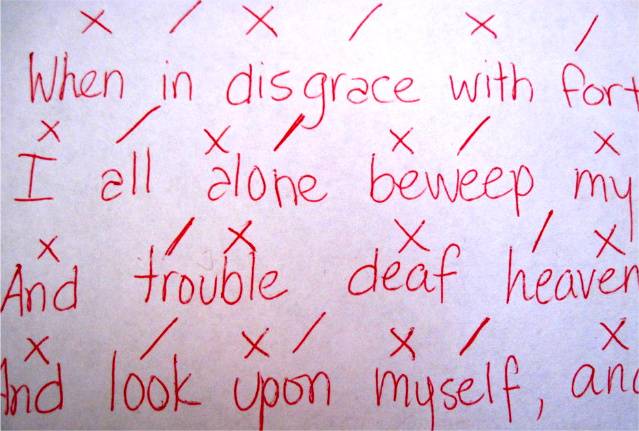 x / x / x /
When in disgrace with fort
x / x / x / x
I all alone beweep my
x / x x / x
And trouble deaf heaven
x / x / x / x
And look upon myself, and